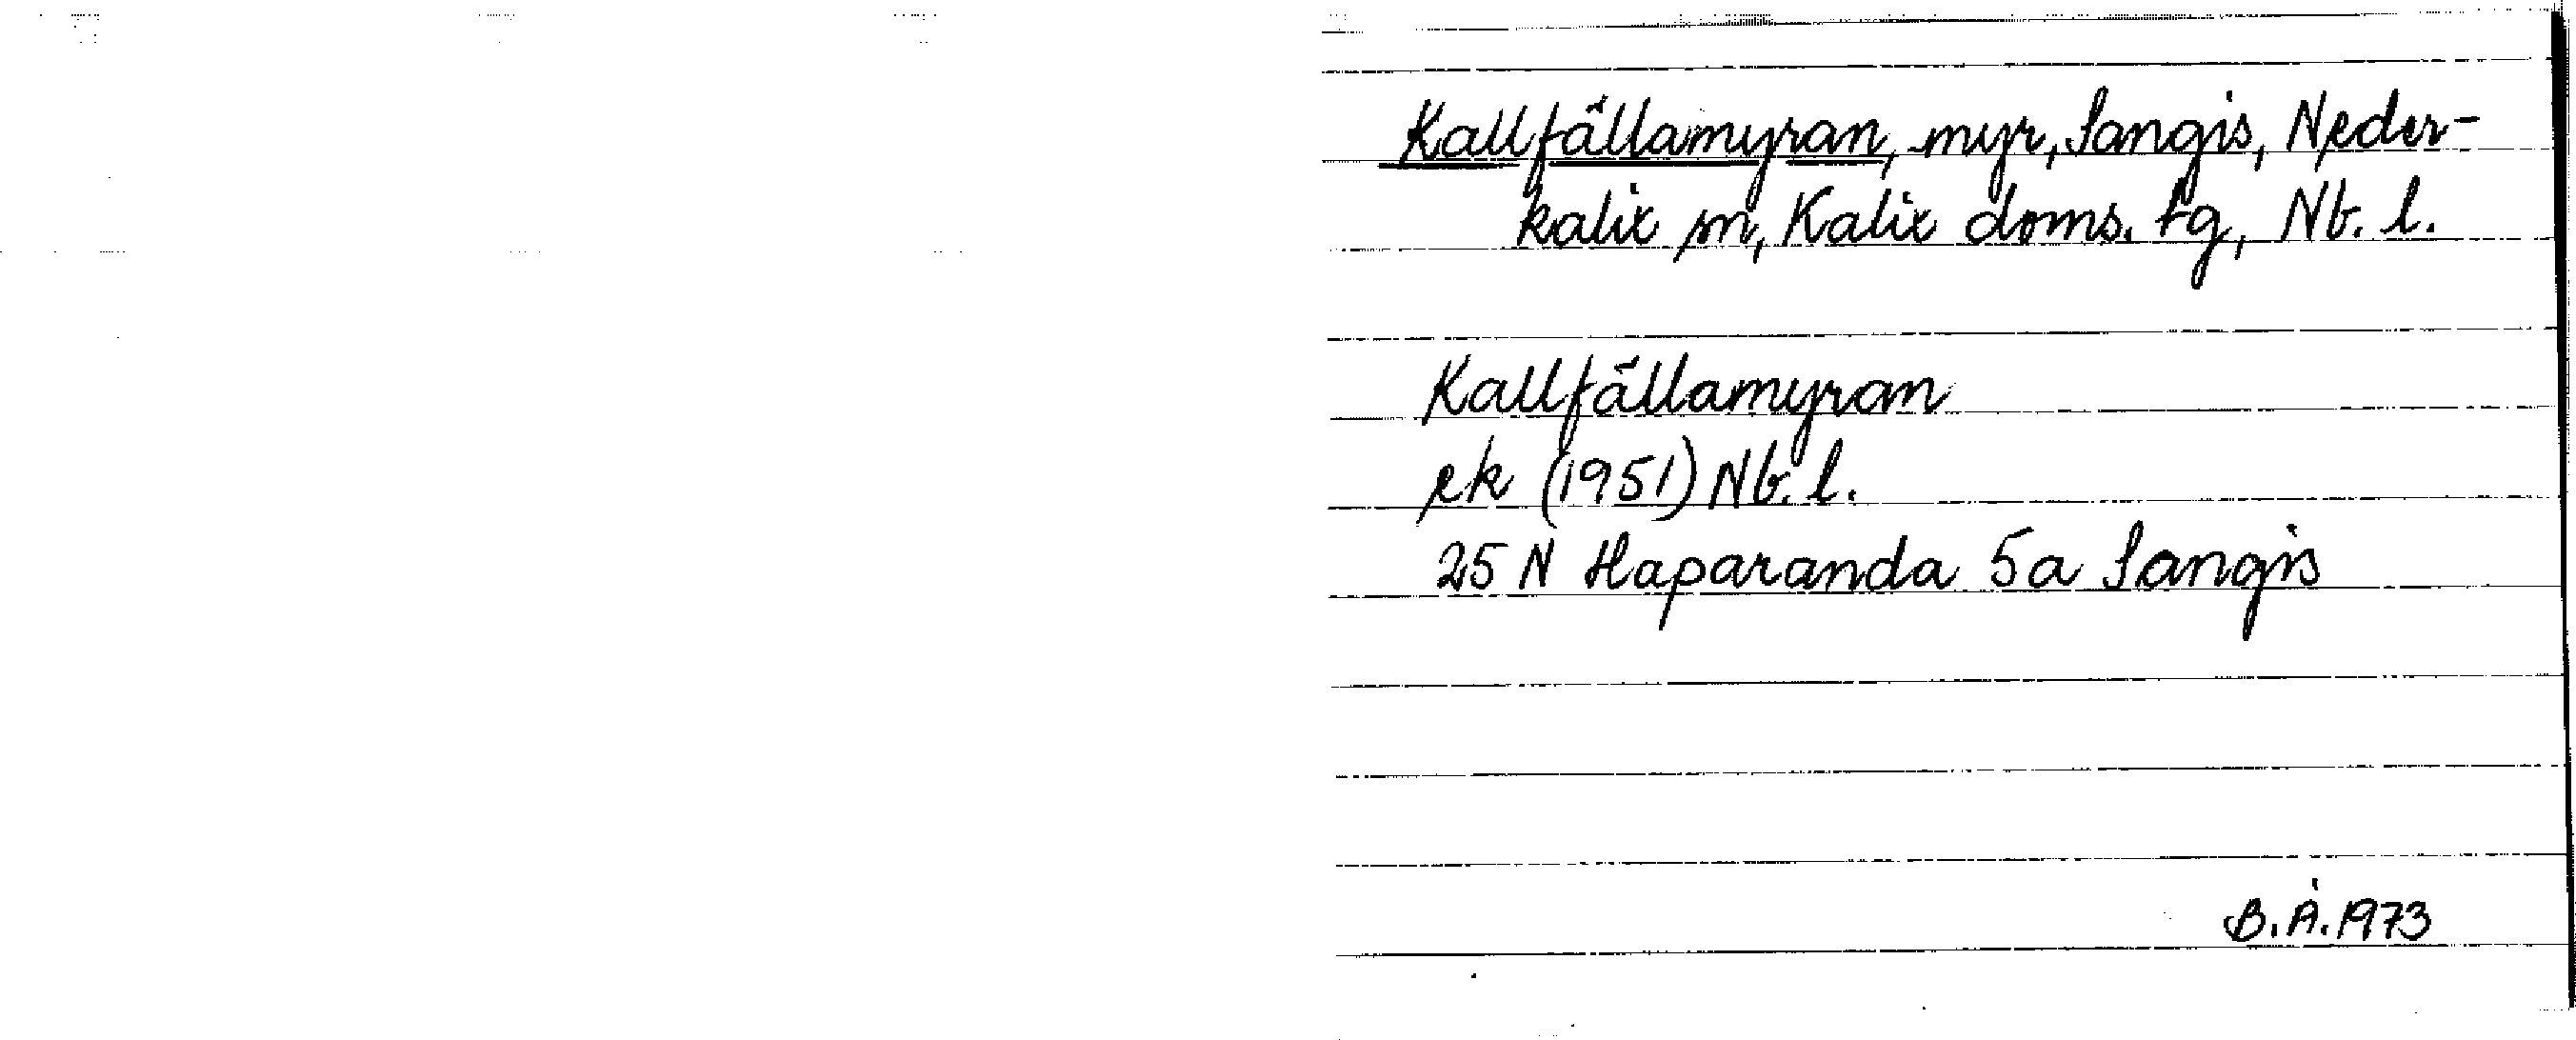 Kallfällamyran, myr, Sangis, Neder-
kalix sn, Kalix doms. tg, Nb. l.
Kallfällamyran
ek (1951) Nb. l.
25 N Haparanda 5a Sangis
B.Å. 1973